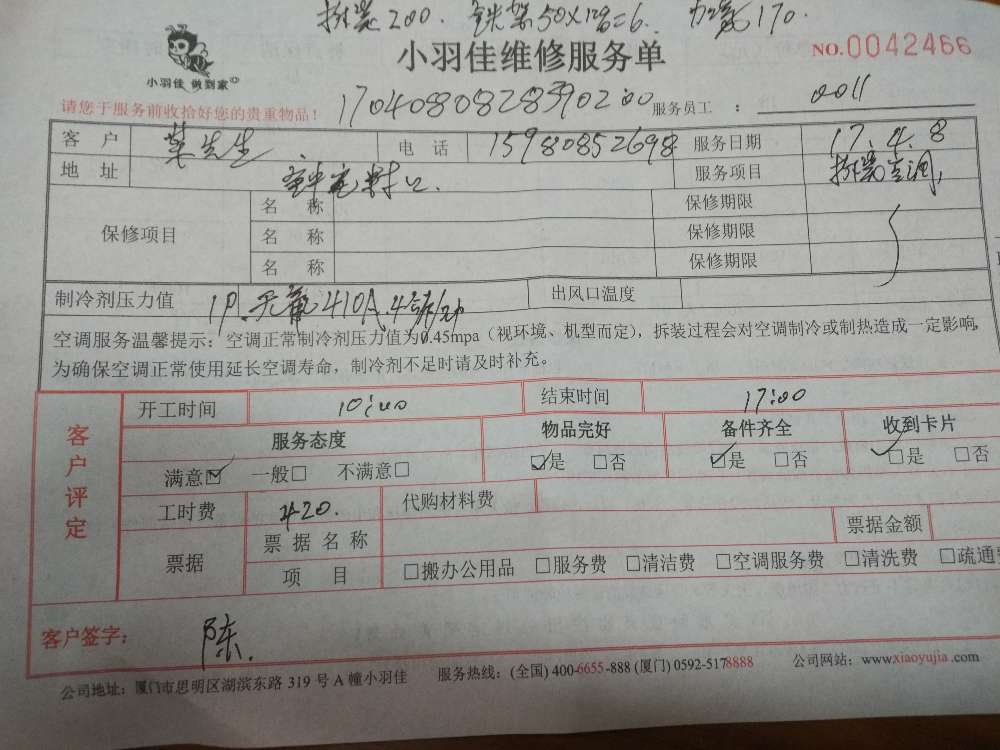 拆装200. 铁架50×1 加氟170.
小羽佳 做到家
小羽佳维修服务单
NO.0042466
请您于服务前收拾好您的贵重物品！
1704080828390200
服务员工 ： 0011
客 户 先生 电 话 15980852698 服务日期 17.4.8
地 址 服务项目 拆装空调
保修项目 名 称 保修期限
名 称 保修期限
名 称 保修期限
制冷剂压力值 1P. 410A. 出风口温度
空调服务温馨提示：空调正常制冷剂压力值为0.45mpa（视环境、机型而定），拆装过程会对空调制冷或制热造成一定影响，
为确保空调正常使用延长空调寿命，制冷剂不足时请及时补充。
客户评定
开工时间 10:00 结束时间 17:00
服务态度 物品完好 备件齐全 收到卡片
满意☑ 一般□ 不满意□ ☑是 □否 ☑是 □否 ☑是 □否
工时费 420. 代购材料费
票据 票据名称 票据金额
项 目 □搬办公用品 □服务费 □清洁费 □空调服务费 □清洗费 □疏通
客户签字： 陈.
公司地址：厦门市思明区湖滨东路 319 号 A 幢小羽佳 服务热线：(全国) 400-6655-888 (厦门) 0592-5178888 公司网站：www.xiaoyujia.com